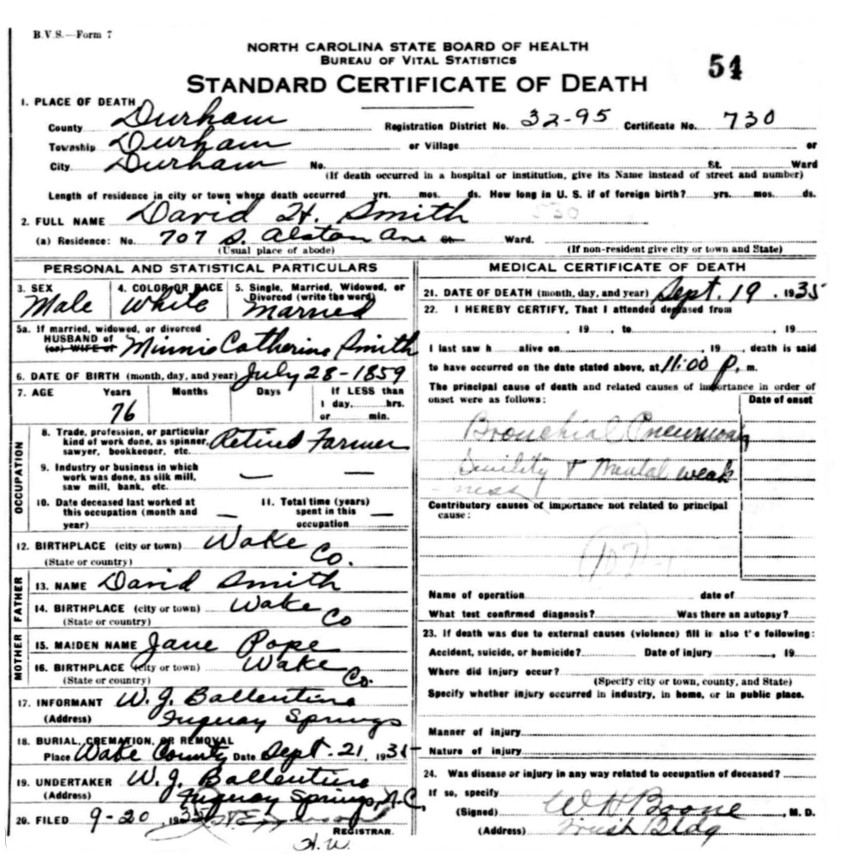 B.V.S.—Form 7
NORTH CAROLINA STATE BOARD OF HEALTH
BUREAU OF VITAL STATISTICS
54
STANDARD CERTIFICATE OF DEATH
1. PLACE OF DEATH
County Durham Registration District No. 32-95 Certificate No. 730
Township Durham or Village or
City Durham No. St. Ward
(If death occurred in a hospital or institution, give its Name instead of street and number)
Length of residence in city or town where death occurred yrs. mos. ds. How long in U. S. if of foreign birth? yrs. mos. ds.
2. FULL NAME David H. Smith 530
(a) Residence: No. 707 S. Alston Ave St. Ward.
(Usual place of abode) (If non-resident give city or town and State)
PERSONAL AND STATISTICAL PARTICULARS
3. SEX 4. COLOR OR RACE 5. Single, Married, Widowed, or
Divorced (write the word)
Male White Married
5a. If married, widowed, or divorced
HUSBAND of
(or) WIFE of Minnie Catherine Smith
6. DATE OF BIRTH (month, day, and year) July 28-1859
7. AGE Years Months Days If LESS than
1 day, hrs.
76 or min.
OCCUPATION
8. Trade, profession, or particular
kind of work done, as spinner,
sawyer, bookkeeper, etc. Retired Farmer
9. Industry or business in which
work was done, as silk mill,
saw mill, bank, etc. — —
10. Date deceased last worked at
this occupation (month and
year) —
11. Total time (years)
spent in this
occupation —
12. BIRTHPLACE (city or town) Wake
(State or country) Co.
FATHER
13. NAME David Smith
14. BIRTHPLACE (city or town) Wake
(State or country) Co
MOTHER
15. MAIDEN NAME Jane Pope
16. BIRTHPLACE (city or town) Wake
(State or country) Co.
17. INFORMANT W. J. Ballentine
(Address) Fuquay Springs
18. BURIAL, CREMATION, OR REMOVAL
Place Wake County Date Sept. 21, 1935
19. UNDERTAKER W. J. Ballentine
(Address) Fuquay Springs, N.C.
20. FILED 9-20, 1935
REGISTRAR.
H.W.
MEDICAL CERTIFICATE OF DEATH
21. DATE OF DEATH (month, day, and year) Sept. 19, 1935
22. I HEREBY CERTIFY, That I attended deceased from
, 19 , to , 19
I last saw h alive on , 19 , death is said
to have occurred on the date stated above, at 11:00 P. m.
The principal cause of death and related causes of importance in order of
onset were as follows: Date of onset
Bronchial Pneumonia
Senility & Mental weak
ness
Contributory causes of importance not related to principal
cause:
Name of operation date of
What test confirmed diagnosis? Was there an autopsy?
23. If death was due to external causes (violence) fill in also the following:
Accident, suicide, or homicide? Date of injury , 19
Where did injury occur?
(Specify city or town, county, and State)
Specify whether injury occurred in industry, in home, or in public place.
Manner of injury
Nature of injury
24. Was disease or injury in any way related to occupation of deceased?
If so, specify
(Signed) W H Boone, M. D.
(Address) Trust Bldg